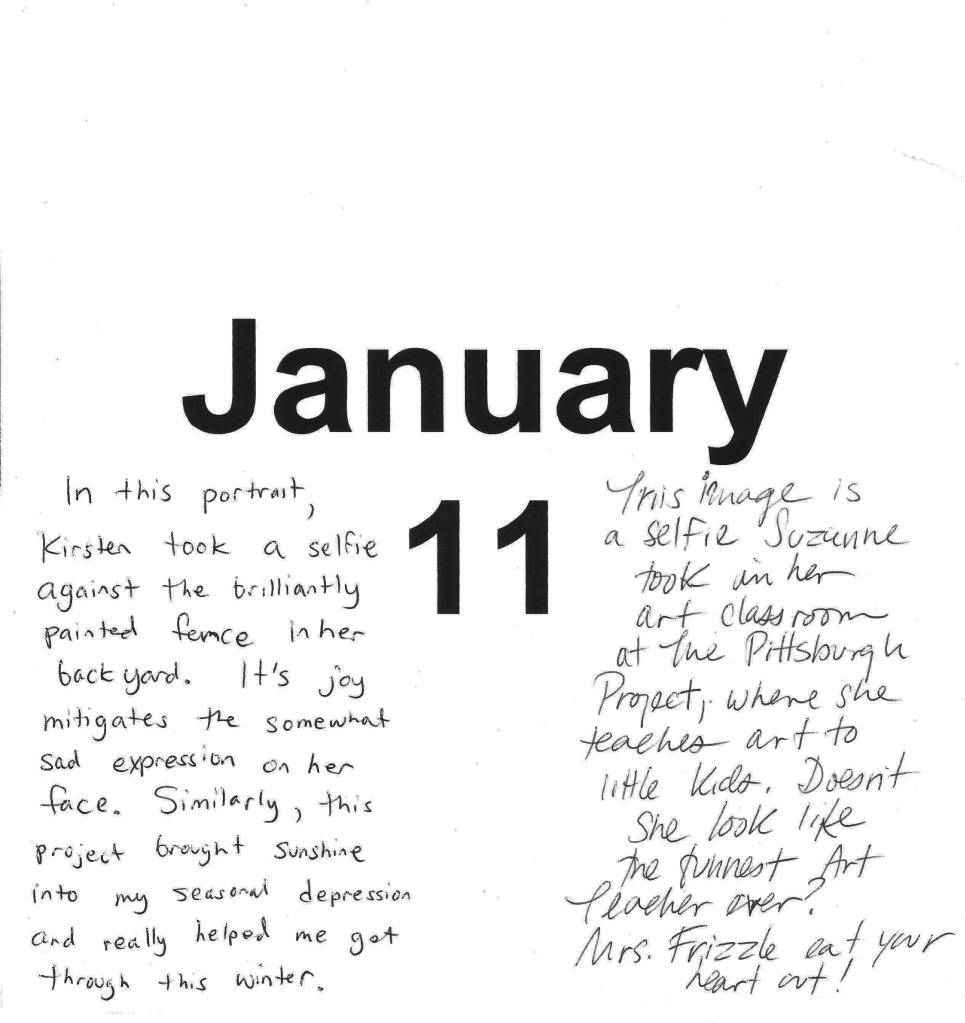 January
11
In this portrait,
Kirsten took a selfie
against the brilliantly
painted fence in her
back yard. It's joy
mitigates the somewhat
sad expression on her
face. Similarly, this
project brought sunshine
into my seasonal depression
and really helped me get
through this winter.
This image is
a selfie Suzanne
took in her
art classroom
at The Pittsburgh
Project, where she
teaches art to
little kids. Doesn't
she look like
the funnest Art
Teacher ever?
Mrs. Frizzle eat your
heart out!